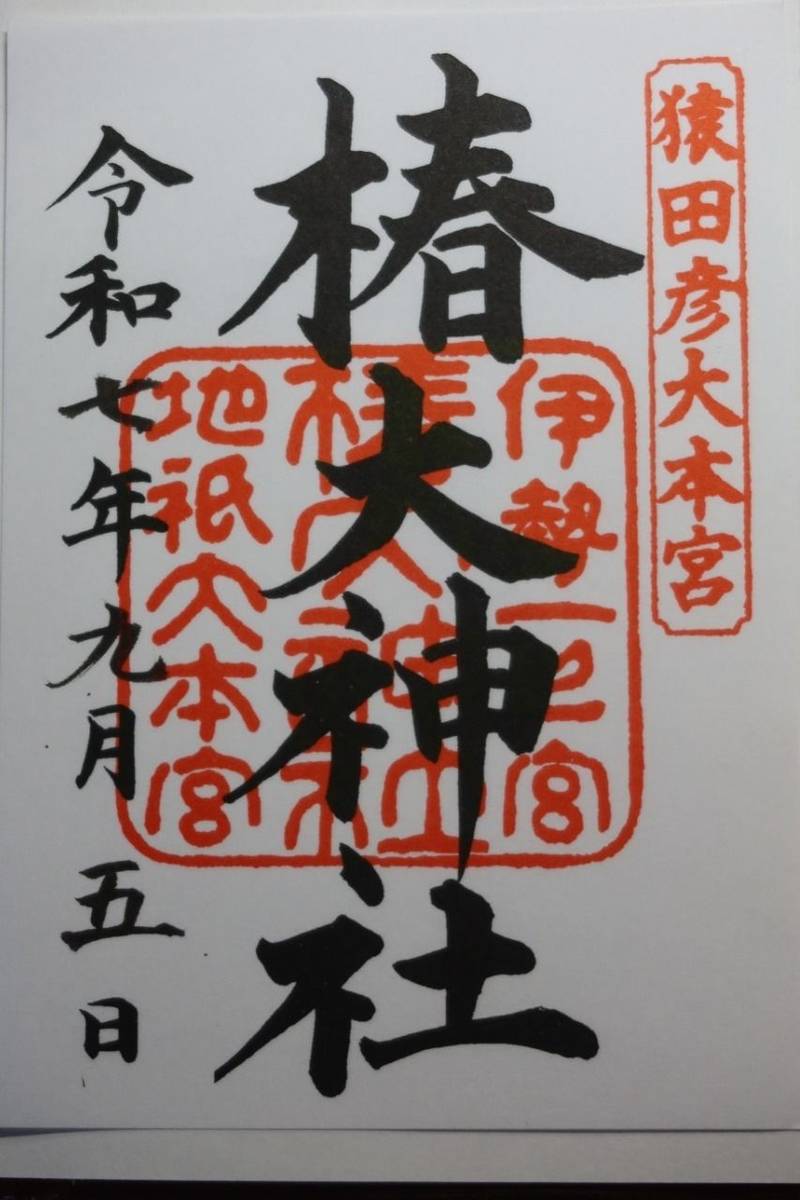 猿田彦大本宮
椿大神社
伊勢一之宮
椿大神社
地祇大本宮
令和七年九月五日